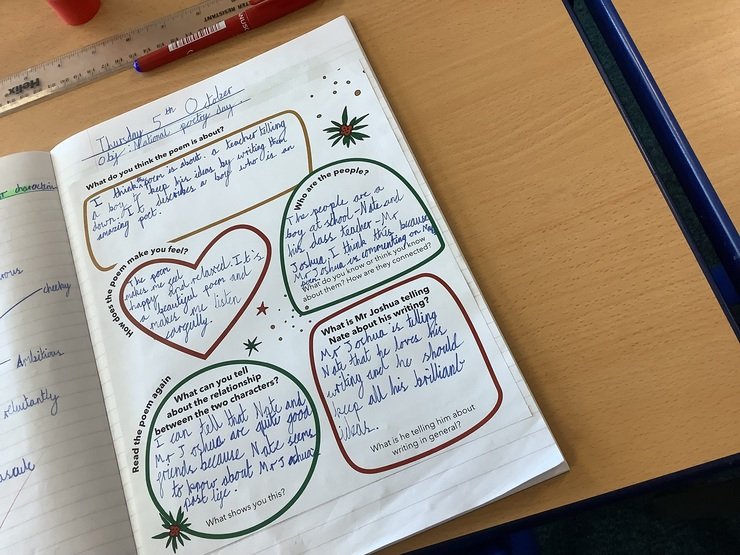 SHATTER RESISTANT
Helix
character
cheeky
Ambitious
reluctantly
Thursday 5th October
Obj: National poetry day.
What do you think the poem is about?
I think poem is about. a teacher telling
a boy to keep his ideas by writing them
down. It describes a boy who is an
amazing poet.
Who are the people?
The people are a
boy at school - Nate and
his class teacher - Mr
Joshua. I think this because
Mr Joshua is commenting on
poem.
What do you know or think you know
about them? How are they connected?
How does the poem make you feel?
The poem
makes me feel
happy and relaxed. It's
a beautiful poem and
makes me listen
carefully.
What is Mr Joshua telling
Nate about his writing?
Mr Joshua is telling
Nate that he loves his
writing and he should
keep all his brilliant
ideas.
What is he telling him about
writing in general?
Read the poem again
What can you tell
about the relationship
between the two characters?
I can tell that Nate and
Mr Joshua are quite good
friends because Nate seems
to know about Mr Joshua
past life.
What shows you this?